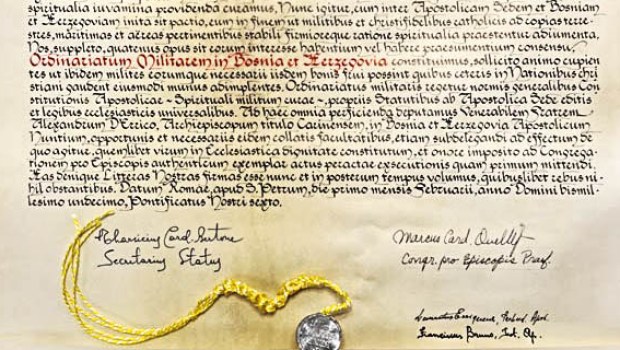 spiritualia iuvamina providenda curamus. Nunc igitur, cum inter Apostolicam Sedem et Bosniam
et Herzegoviam inita sit pactio, eum in finem ut militibus et christifidelibus catholicis ad copias terre-
stres, maritimas et aëreas pertinentibus stabili firmioreque ratione spiritualia praestentur adiumenta,
Nos, suppleto, quatenus opus sit eorum interesse habentium vel habere praesumentium consensu,
Ordinariatum Militarem in Bosnia et Herzegovia constituimus, sollicito animo cupien-
tes ut ibidem milites eorumque necessarii iisdem bonis frui possint quibus ceteris in Nationibus chri-
stiani gaudent eiusmodi munus adimplentes. Ordinariatus militaris regetur normis generalibus Con-
stitutionis Apostolicae «Spirituali militum curae», propriis Statutibus ab Apostolica Sede editis
et legibus ecclesiasticis universalibus. Ad haec omnia perficienda deputamus Venerabilem Fratrem
Alexandrum D'Errico, Archiepiscopum titulo Carinensem, in Bosnia et Herzegovia Apostolicum
Nuntium, opportunis et necessariis eidem collatis facultatibus, etiam subdelegandi ad effectum de
quo agitur, quemlibet virum in Ecclesiastica dignitate constitutum, et onere imposito ad Congrega-
tionem pro Episcopis authenticum exemplar actus peractae exsecutionis quam primum mittendi.
Has denique Litteras Nostras firmas esse nunc et in posterum tempus volumus, quibuslibet rebus ni-
hil obstantibus. Datum Romae, apud S. Petrum, die primo mensis Februarii, anno Domini bismil-
lesimo undecimo, Pontificatus Nostri sexto.
Tharsicius Card. Bertone
Secretarius Status
Marcus Card. Ouellet
Congr. pro Episcopis Praef.
Franciscus Bruno,